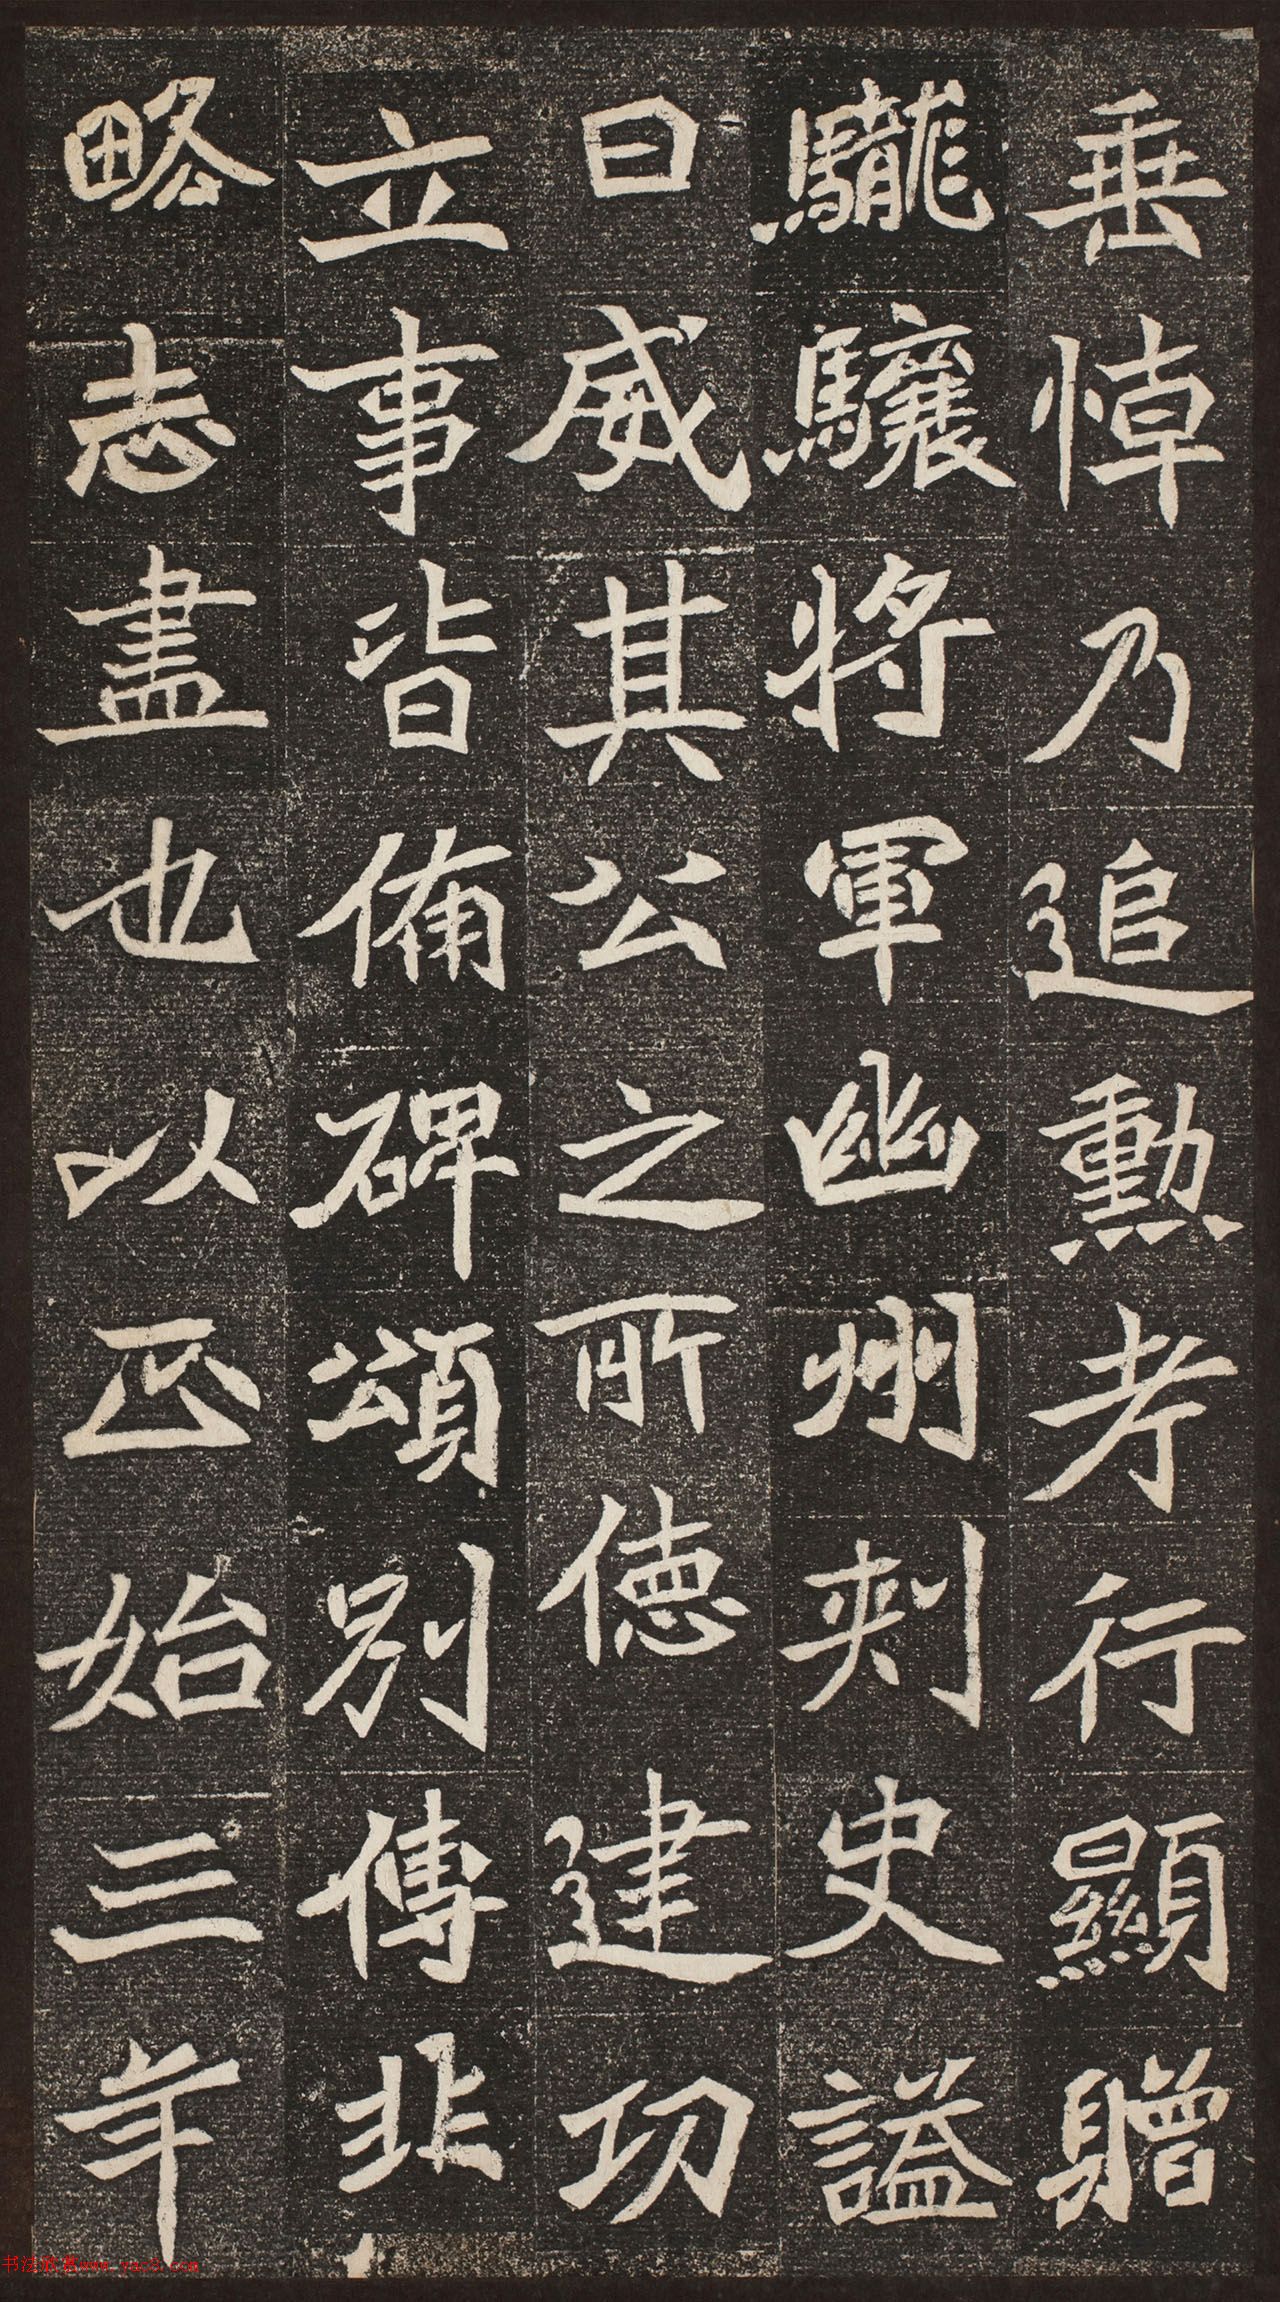 垂悼乃追勲考行顯贈
驡驤將軍幽州刾史謚
曰威其公之所徳建功
立事皆俻碑頌別傳非
略志盡也以正始三年
书法欣赏www.yac8.com